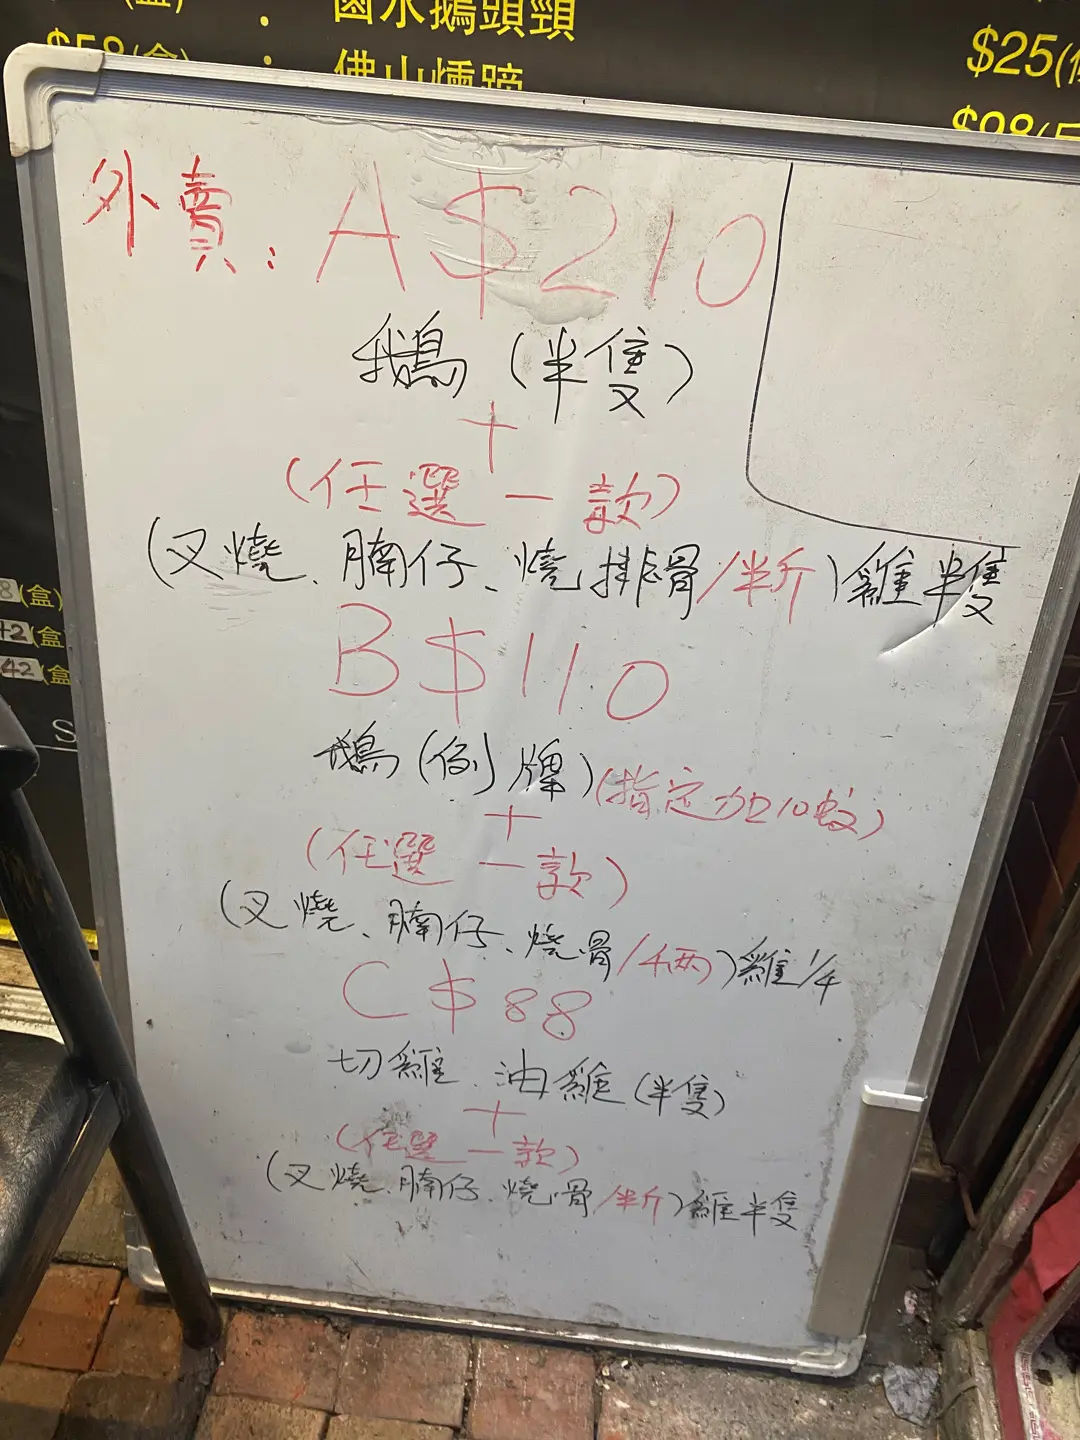 ：鹵水鵝頭頸
$58(盒)：佛山燻蹄
$25(
$98(
外賣：A $210
鵝（半隻）
+
（任選一款）
（叉燒、腩仔、燒排骨/半斤）雞半隻
B $110
鵝（例牌）（指定加10蚊）
+
（任選一款）
（叉燒、腩仔、燒骨/4両）雞1/4
C $88
切雞、油雞（半隻）
+
（任選一款）
（叉燒、腩仔、燒骨/半斤）雞半隻
8(盒)
42(盒
42(盒
S